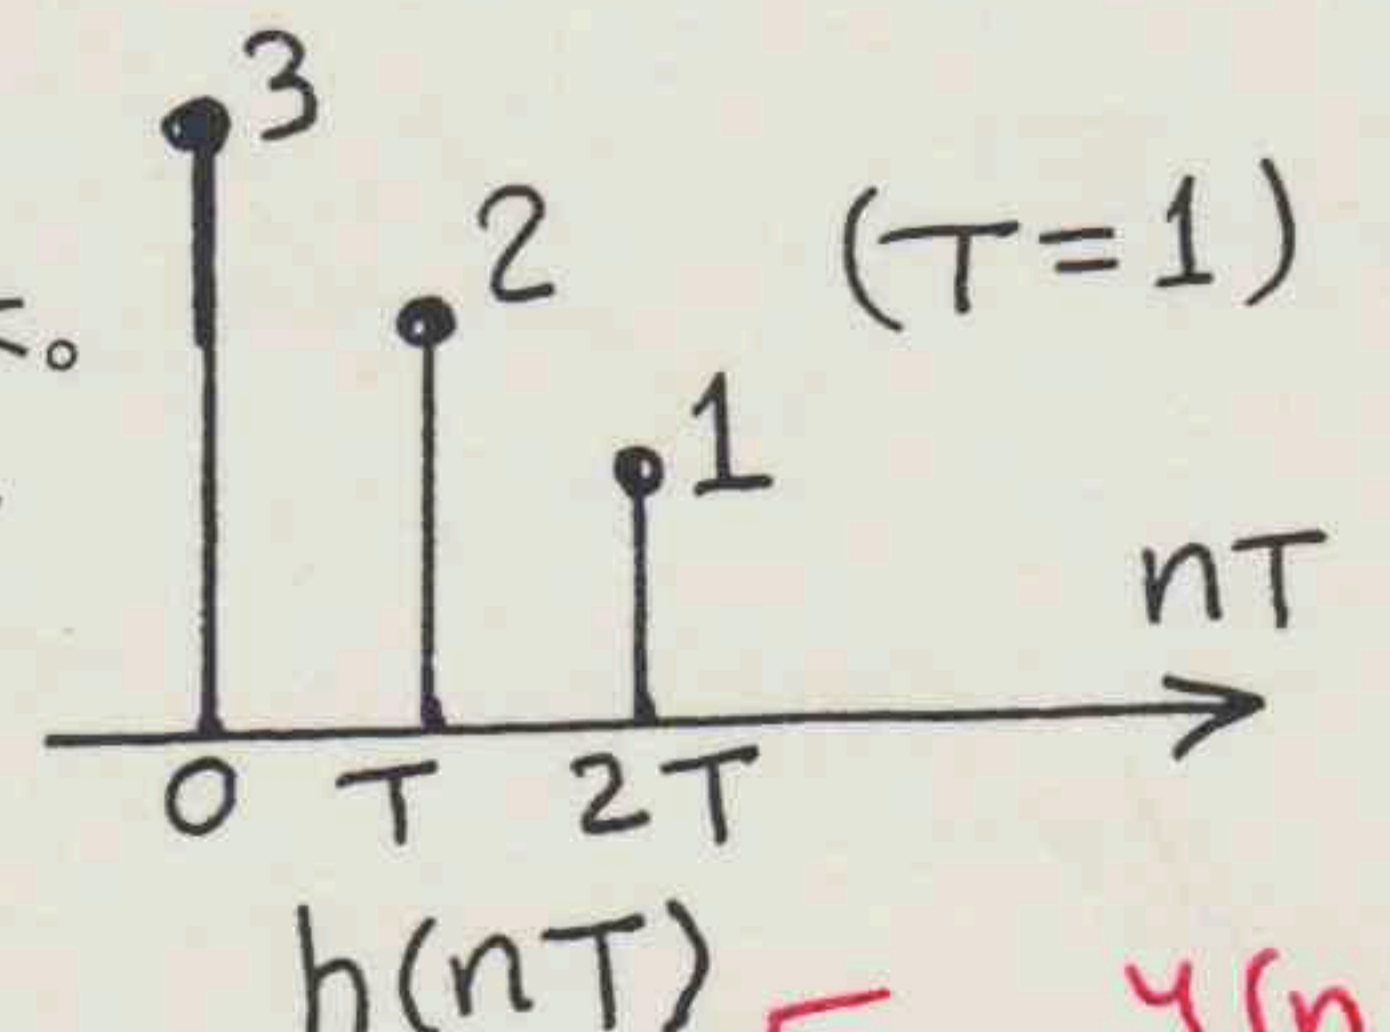 3
2
(T=1)
1
nT
0 T 2T
h(nT)
y(n